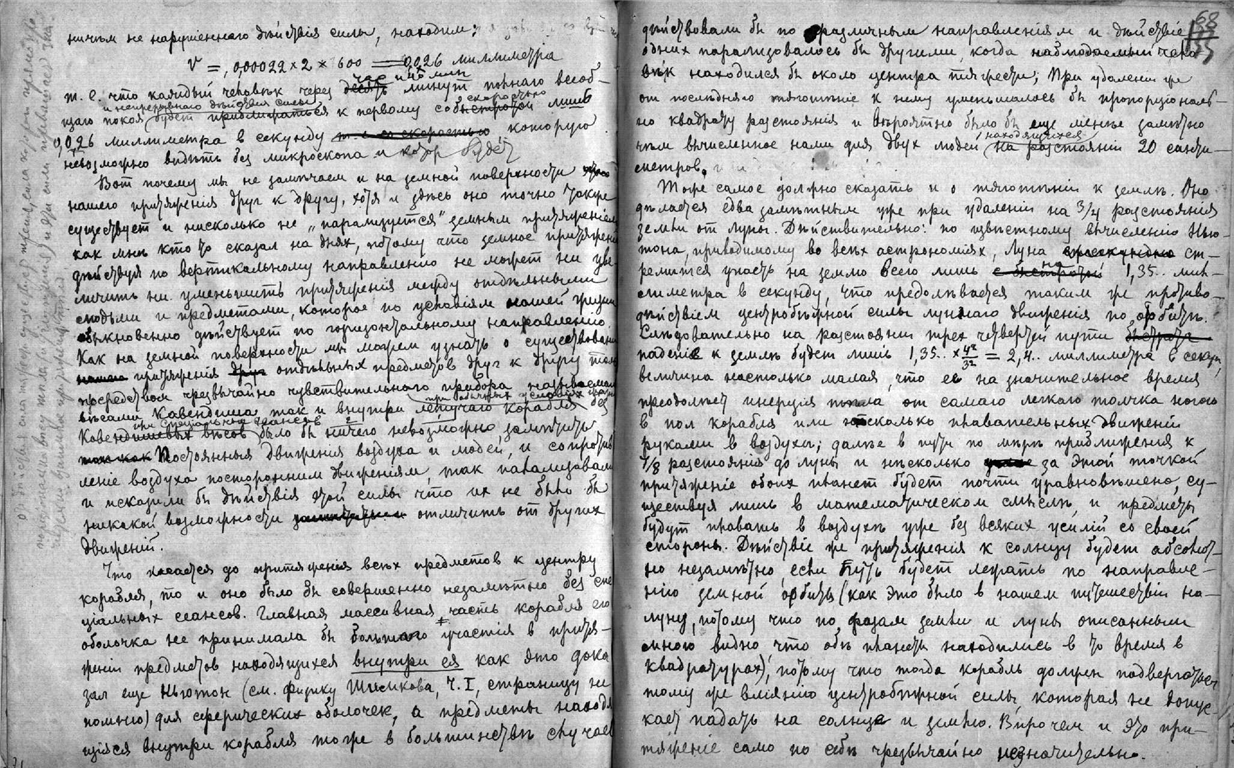 ничѣмъ не нарушеннаго дѣйствія силы, находимъ:
V = ,00022 × 2 × 600 = 0,026 миллиметра
т. е. что каждый человѣкъ через час и 45 мин полнаго всеоб-
щаго покоя и непрерывнаго дѣйствія силы будетъ к первому со скоростью лишь
0,026 миллиметра в секунду, которую
невозможно видѣть без микроскопа и
Вот почему мы не замѣчаем и на земной поверхности
нашего притяженія друг к другу, хотя и здѣсь оно точно также
существует и нисколько не „парализуется" земным притяженіем
как мнѣ кто то сказал на днях, потому что земное притяженіе
дѣйствуя по вертикальному направленію не может ни уве-
личить ни уменьшить притяженія между отдѣльными
людьми и предметами, которое по условіям нашей
обыкновенно дѣйствует по горизонтальному направленію.
Как на земной поверхности мы можем узнать о существованіи
притяженія отдѣльных предметов друг к другу только
посредством чрезвычайно чувствительнаго прибора называемаго
вѣсами Кавендиша так и внутри летучаго корабля без
Кавендишевых вѣсов было бы невозможно замѣтить
Постоянныя движенія воздуха и людей, и сопротив-
леніе воздуха посторонним движеніям, так парализовали
и исказили бы дѣйствія этой силы что их не было бы
никакой возможности отличить от других
движеній.
Что касается до притяженія всѣх предметов к центру
корабля, то и оно было бы совершенно незамѣтно без спе-
ціальных сеансов. Главная массивная часть корабля его
оболочка не принимала бы большаго участія в притя-
женіи предметов находящихся внутри ея как это дока-
зал еще Ньютон (см. физику Шимкова, Ч. I, страницу не
помню) для сферических оболочек, а предметы находя-
щіяся внутри корабля тоже в большинствѣ случаев
68
дѣйствовали бы по различным направленіям и дѣйствіе
одних парализовалось бы другими, когда наблюдаемый чело-
вѣк находился бы около центра тяжести; При удаленіи же
от послѣдняго тяготѣніе к нему уменьшалось бы пропорціональ-
но квадрату разстоянія и вѣроятно было бы еще менѣе замѣтно
чѣм вычисленное нами для двух людей находящихся на разстояніи 20 санти-
метров.
Тоже самое должно сказать и о тяготѣніи к землѣ. Оно
дѣлается едва замѣтным уже при удаленіи на 3/4 разстоянія
земли от луны. Дѣйствительно: по извѣстному вычисленію Нью-
тона, приводимому во всѣх астрономіях, луна ст-
ремится упасть на землю всего лишь на 1,35.. мил-
лиметра в секунду, что преодолѣвается таким же противо-
дѣйствіем центробѣжной силы луннаго движенія по орбитѣ.
Слѣдовательно на разстояніи трех четвертей пути
паденіе к землѣ будет лишь 1,35.. × 4²/3² = 2,4.. миллиметра в секун,
величина настолько малая, что ее на значительное время
преодолѣет инерція от самаго легкаго толчка ногою
в пол корабля или нѣсколько плавательных движеній
руками в воздухѣ; далѣе в пути по мѣрѣ приближенія к
7/8 разстоянія до луны и нѣсколько за этой точкой
притяженіе обоих планет будет почти уравновѣшено, су-
ществуя лишь в математическом смыслѣ, и предметы
будут плавать в воздухѣ уже без всяких усилій со своей
стороны. Дѣйствіе же притяженія к солнцу будет абсолют-
но незамѣтно, если путь будет лежать по направле-
нію земной орбиты (как это было в нашем путешествіи на
луну, потому что по фазам земли и луны описанным
мною видно что обѣ планеты находились в то время в
квадратурах), потому что тогда корабль должен подвергаться
тому же вліянію центробѣжной силы, которая не допус-
кает падать на солнце и землю. Впрочем и это при-
тяженіе само по себѣ чрезвычайно незначительно.